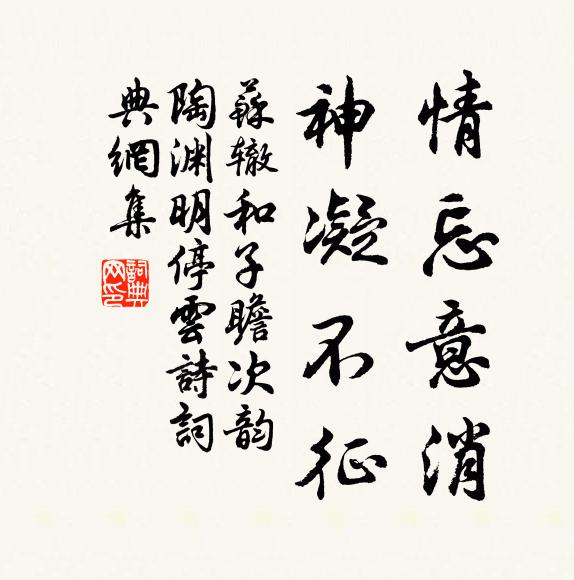 情忘意消
神凝不征
蘇辙和子瞻次韵
陶渊明停雲詩詞
典網集
詞典
网印